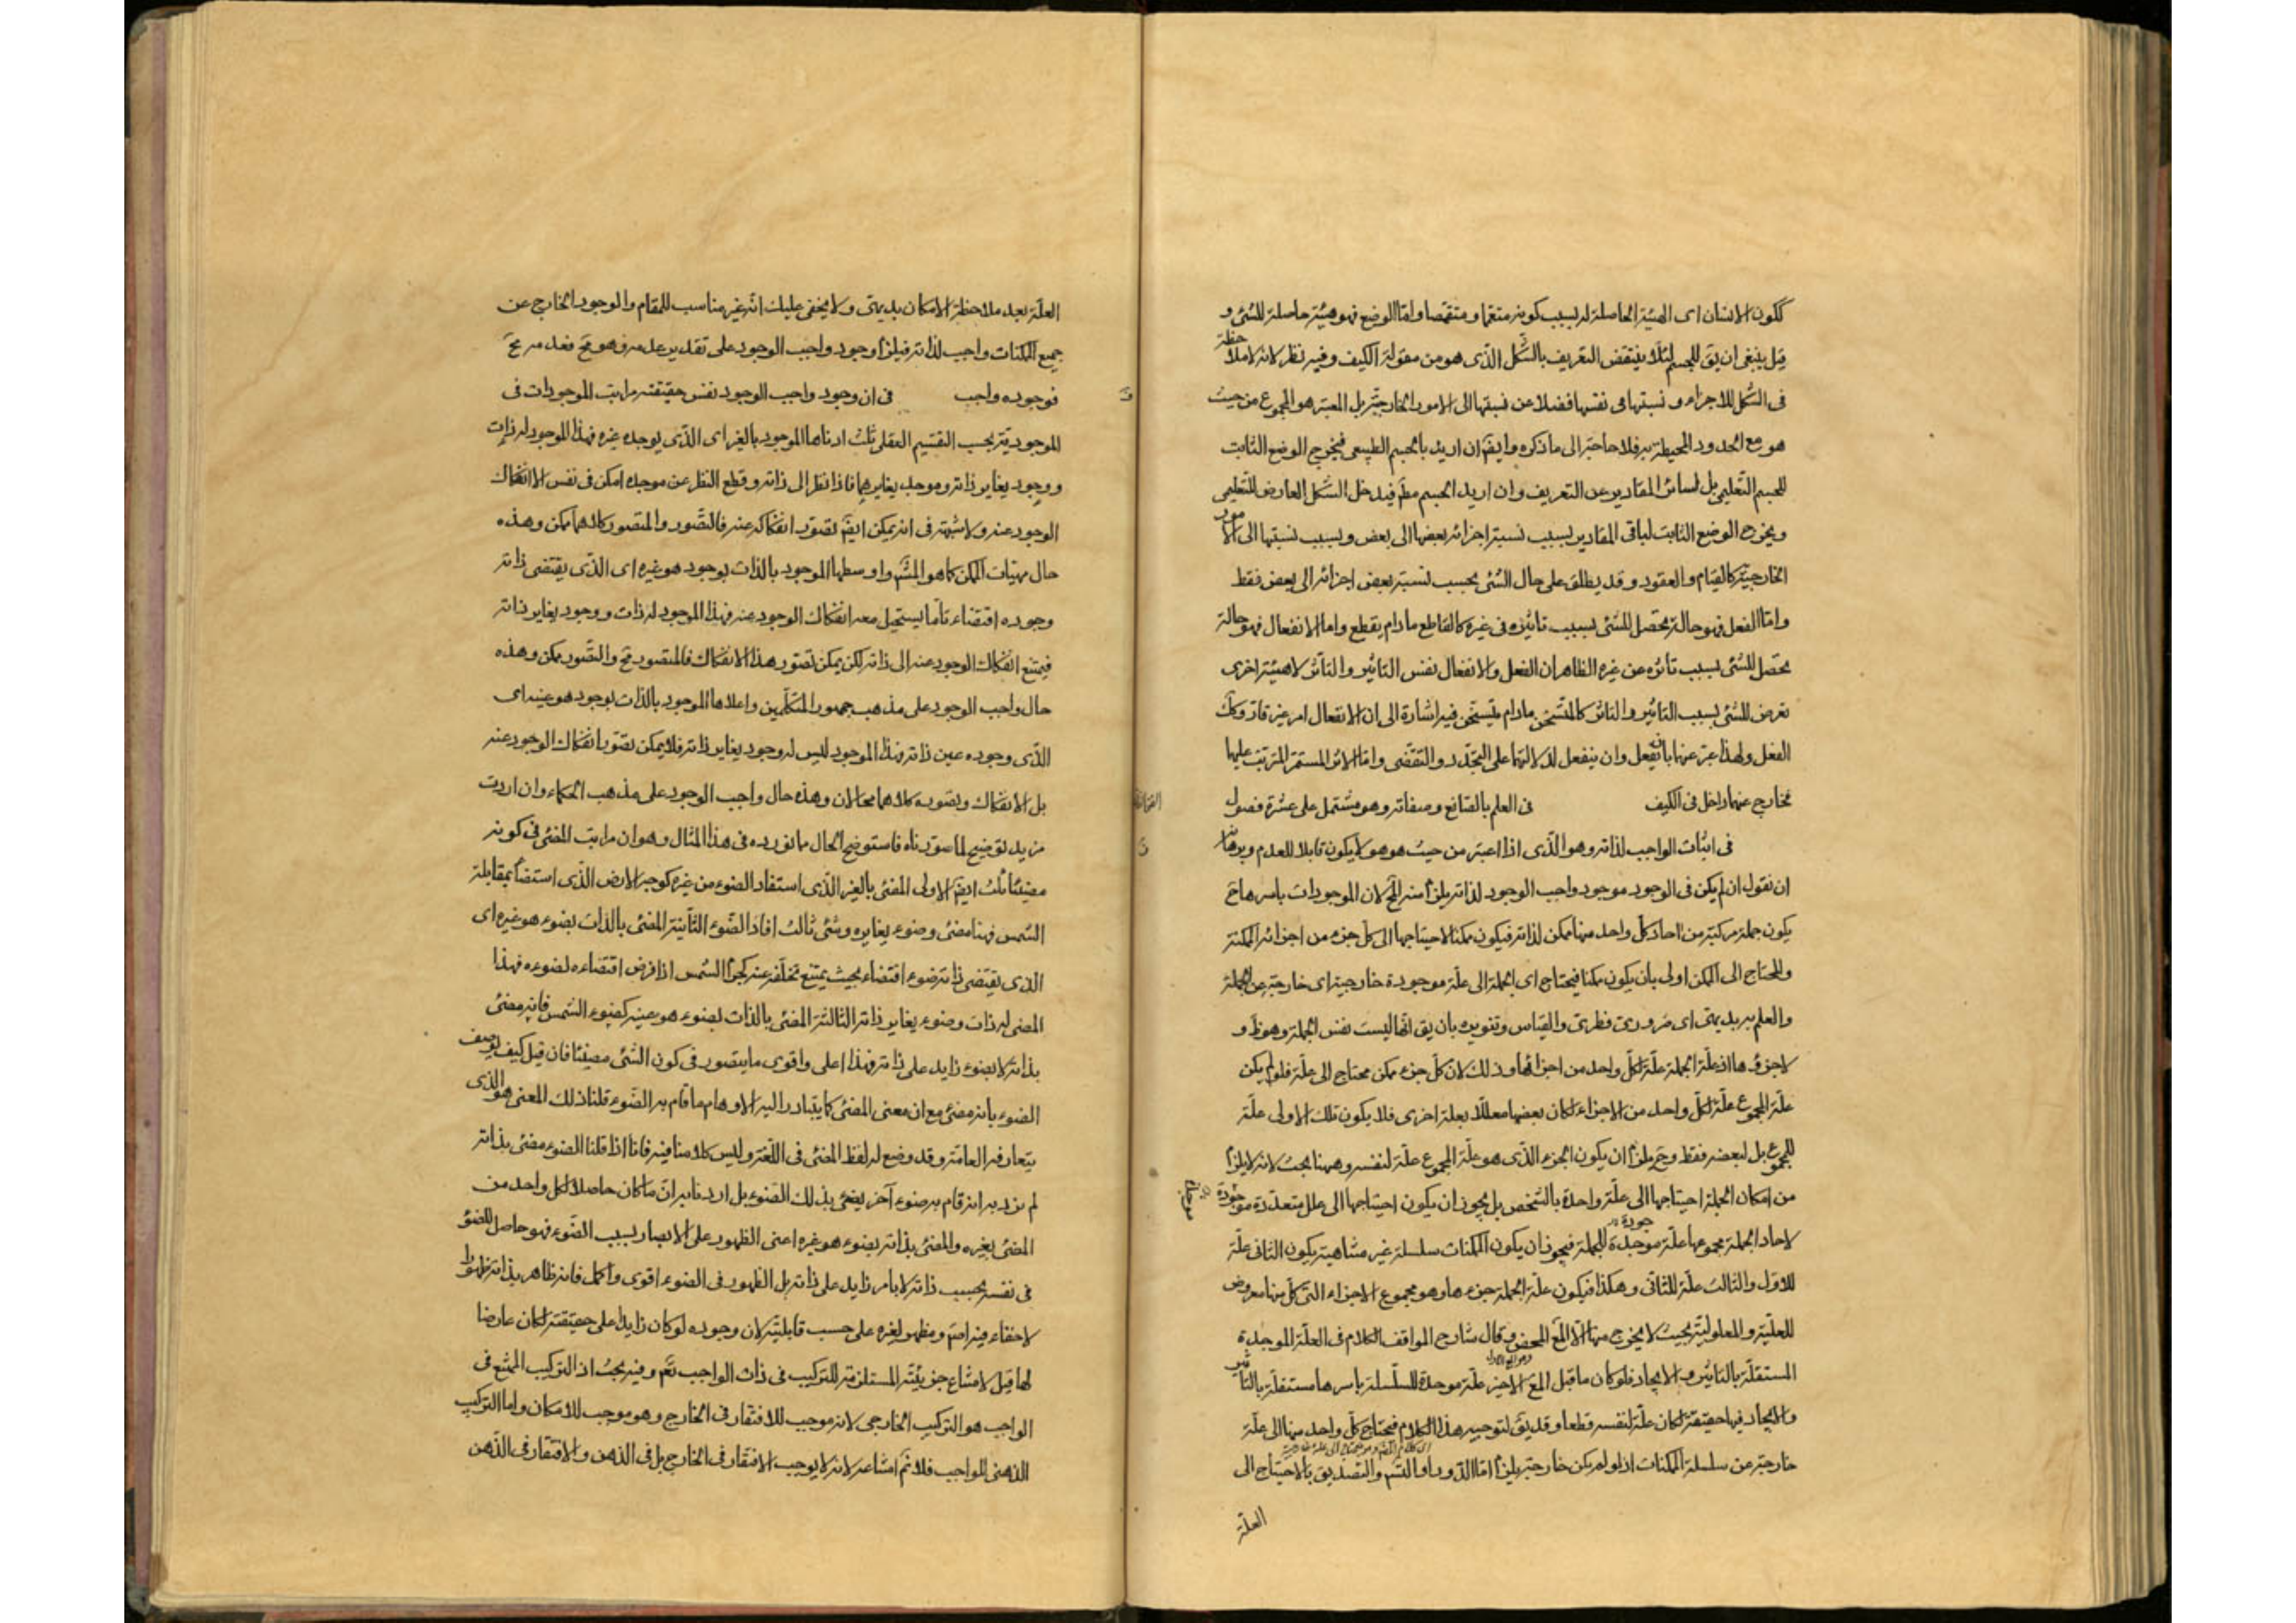 ككون الانسان اى الهيئة الحاصلة له بسبب كونه متعمما و متقمصا واما الوضع فهو هيئة حاصلة للشئ و
قيل ينبغى ان يق للجسم لئلا ينتقض التعريف بالشكل الذى هو من مقولة الكيف وفيه نظر لانه لا ملاحظة
فى الشكل للاجزاء و نسبتها فى نفسها فضلا عن نسبتها الى الامور الخارجية بل المعتبر هو المجموع من حيث
هو مع الحدود المحيطة به فلا حاجة الى ما ذكره وايضَ ان اريد بالجسم الطبيعى فيخرج الوضع الثابت
للجسم التعليمى بل لسائر المقادير عن التعريف وان اريد الجسم مطَ فيدخل الشكل العارض للتعليمى
ويخرج الوضع الثابت لباقى المقادير بسبب نسبة اجزائه بعضها الى بعض وبسبب نسبتها الى الامور
الخارجية كالقيام والعقود وقد يطلق على حال الشئ بحسب نسبة بعض اجزائه الى بعض فقط
واما الفعل فهو حالة تحصل للشئ بسبب تاثيره فى غيره كالقاطع ما دام يقطع واما الانفعال فهو حالة
تحصل للشئ بسبب تأثره عن غيره الظاهر ان الفعل والانفعال نفس التاثير والتأثر لا هيئة اخرى
تعرض للشئ بسبب التاثير والتاثر كالمتسخن مادام يتسخن فيه اشارة الى ان الانفعال امر غير قار وكك
الفعل ولهذا عبر عنها بان يفعل وان ينفعل لدلالتهما على التجدد والتقضى واما الاثر المستمر المترتب عليها
فخارج عنها داخل فى الكيف فى العلم بالصانع وصفاته وهو مشتمل على عشرة فصول
فى اثبات الواجب لذاته وهو الذى اذا اعتبر من حيث هو هو لا يكون قابلا للعدم وبرهانه
ان نقول ان لم يكن فى الوجود موجود واجب الوجود لذاته يلزم منه المحَ لان الموجودات باسرها حَ
يكون جملة مركبة من احاد كل واحد منها ممكن لذاته فيكون ممكنا لاحتياجها الى كل جزء من اجزائه الممكنة
والمحتاج الى الممكن اولى بان يكون ممكنا فيحتاج اى الجملة الى علة موجودة خارجية اى خارجة عن الجملة
والعلم به بديهى اى ضرورى فطرى والقياس وتنويره بان يق انها ليست نفس الجملة وهو ظَ و
لا جزؤها اذ علة الجملة علة لكل واحد من اجزائها وذلك لان كل جزء ممكن محتاج الى علة فلو لم يكن
علة المجموع علة لكل واحد من الاجزاء لكان بعضها معللا بعلة اخرى فلا يكون تلك الاولى علة
للمجموع بل لبعضه فقط وحَ يلزم ان يكون الجزء الذى هو علة المجموع علة لنفسه وههنا بحث لانه لا يلزم
من امكان الجملة احتياجها الى علة واحدة بالشخص بل يجوز ان يكون احتياجها الى علل متعددة موجودة
موجدة
لاحاد الجملة مجموعها علة موجدة للجملة فيجوز ان يكون الممكنات سلسلة غير متناهية يكون الثانى علة
للاول والثالث علة للثانى وهكذا فيكون علة الجملة جزءها وهو مجموع الاجزاء التى كل منها معروض
للعلية والمعلولية بحيث لا يخرج منها الا المع المحض وقال شارح المواقف الكلام فى العلة الموجدة
المستقلة بالتاثير و الايجاد فلو كان ما قبل المع الاخير علة موجدة للسلسلة باسرها مستقلة بالتاثير
والايجاد فيها حقيقة لكان علة لنفسه قطعا وقد يق لتوجيه هذا الكلام فيحتاج كل واحد منها الى علة
خارجة عن سلسلة الممكنات اذ لو لم يكن خارجة يلزم اما الدور او التس والتصديق بالاحتياج الى
العلة
العلة بعد ملاحظة الامكان بديهى ولا يخفى عليك انه غير مناسب للمقام والموجود الخارج عن
جميع الممكنات واجب لذاته فيلزم وجود واجب الوجود على تقدير عدمه وهو مَح فعدمه مَح
فوجوده واجب فى ان وجود واجب الوجود نفس حقيقته مراتب الموجودات فى
الموجودية بحسب التقسيم العقلى ثلث ادناها الموجود بالغير اى الذى يوجده غيره فهذا الموجود له ذات
و وجود يغاير ذاته وموجد يغايرهما فاذا نظر الى ذاته وقطع النظر عن موجده امكن فى نفس الامر انفكاك
الوجود عنه ولا شبهة فى انه يمكن ايضَ تصور انفكاكه عنه فالتصور والمتصور كلاهما ممكن وهذه
حال مهيات الممكن كما هو المشَ واوسطها الموجود بالذات بوجود هو غيره اى الذى يقتضى ذاته
وجوده اقتضاء تاما يستحيل معه انفكاك الوجود عنه فهذا الموجود له ذات و وجود يغاير ذاته
فيمتنع انفكاك الوجود عنه الى ذاته لكن يمكن تصور هذا الانفكاك فالمتصور مَح والتصور ممكن وهذه
حال واجب الوجود على مذهب جمهور المتكلمين واعلاها الموجود بالذات بوجود هو عينه اى
الذى وجوده عين ذاته فهذا الموجود ليس له وجود يغاير ذاته فلا يمكن تصور انفكاك الوجود عنه
بل الانفكاك وتصوره كلاهما محالان وهذه حال واجب الوجود على مذهب الحكماء وان اردت
مزيد توضيح لما صورناه فاستوضح الحال مما نورده فى هذا المثال وهو ان مراتب المضئ فى كونه
مضيئا ثلث ايضَ الاولى المضئ بالغير الذى استفاد الضوء من غيره كوجه الارض الذى استضأ بمقابلة
الشمس فهنا مضئ وضوء يغايره وشئ ثالث افاد الضوء الثانية المضئ بالذات بضوء هو غيره اى
الذى يقتضى ذاته ضوءه اقتضاء بحيث يمتنع تخلفه عنه كجرم الشمس اذا فرض اقتضاءه لضوءه فهذا
المضئ له ذات وضوء يغاير ذاته الثالثة المضئ بالذات بضوء هو عينه كضوء الشمس فانه مضئ
بذاته لا بضوء زايد على ذاته فهذا اعلى واقوى ما يتصور فى كون الشئ مضيئا فان قيل كيف يوصف
الضوء بانه مضئ مع ان معنى المضئ كما يتبادر اليه الاوهام ما قام به الضوء قلنا ذلك المعنى هو الذى
يتعارفه العامة وقد وضع له لفظ المضئ فى اللغة وليس كلامنا فيه فانا اذا قلنا الضوء مضئ بذاته
لم نرد به انه قام به ضوء آخر يضئ بذلك الضوء بل اردنا به ان ما كان حاصلا لكل واحد من
المضئ بغيره والمضئ بذاته بضوء هو غيره اعنى الظهور على الابصار بسبب الضوء فهو حاصل للضوء
فى نفسه بحسب ذاته لا بامر زايد على ذاته بل الظهور فى الضوء اقوى واكمل فانه ظاهر بذاته ظهورا
لا خفاء فيه اصلا ومظهر لغيره على حسب قابليته لان وجوده لو كان زايدا على حقيقته لكان عارضا
لها قيل لامتناع جزئيته المستلزمة للتركيب فى ذات الواجب تعَم وفيه بحث اذ التركيب الممتنع فى
الواجب هو التركيب الخارجى لانه موجب للافتقار فى الخارج وهو موجب للامكان واما التركيب
الذهنى للواجب فلا ثم امتناعه لانه لا يوجب الافتقار فى الخارج بل فى الذهن والافتقار فى الذهن